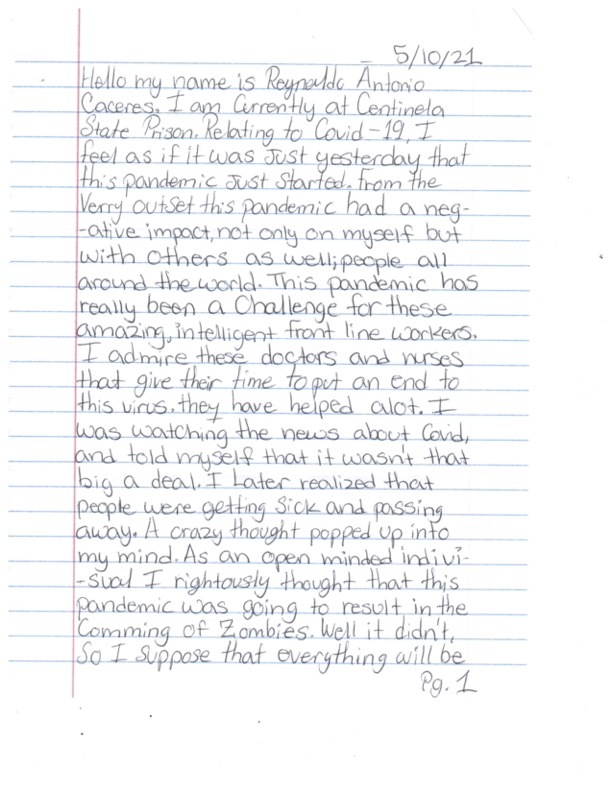 5/10/21
Hello my name is Reynaldo Antonio
Caceres. I am Currently at Centinela
State Prison. Relating to Covid-19, I
feel as if it was Just yesterday that
this pandemic Just started. From the
Verry outset this pandemic had a neg-
-ative impact, not only on myself but
with others as well; people all
around the world. This pandemic has
really been a Challenge for these
amazing, intelligent front line workers.
I admire these doctors and nurses
that give their time to put an end to
this virus. they have helped alot. I
was watching the news about Covid,
and told myself that it wasn't that
big a deal. I Later realized that
people were getting Sick and passing
away. A crazy thought popped up into
my mind. As an open minded indivi-
-sual I rightously thought that this
pandemic was going to result in the
Comming of Zombies. Well it didn't,
So I suppose that everything will be
Pg. 1